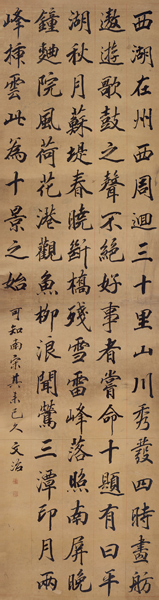 西湖在州西周迴三十里山川秀發四時畫舫
遨遊歌鼓之聲不絕好事者嘗命十題有曰平
湖秋月蘇堤春曉斷橋殘雪雷峰落照南屏晚
鐘麯院風荷花港觀魚柳浪聞鶯三潭印月兩
峰插雲此為十景之始 可知南宋其来已久 文治